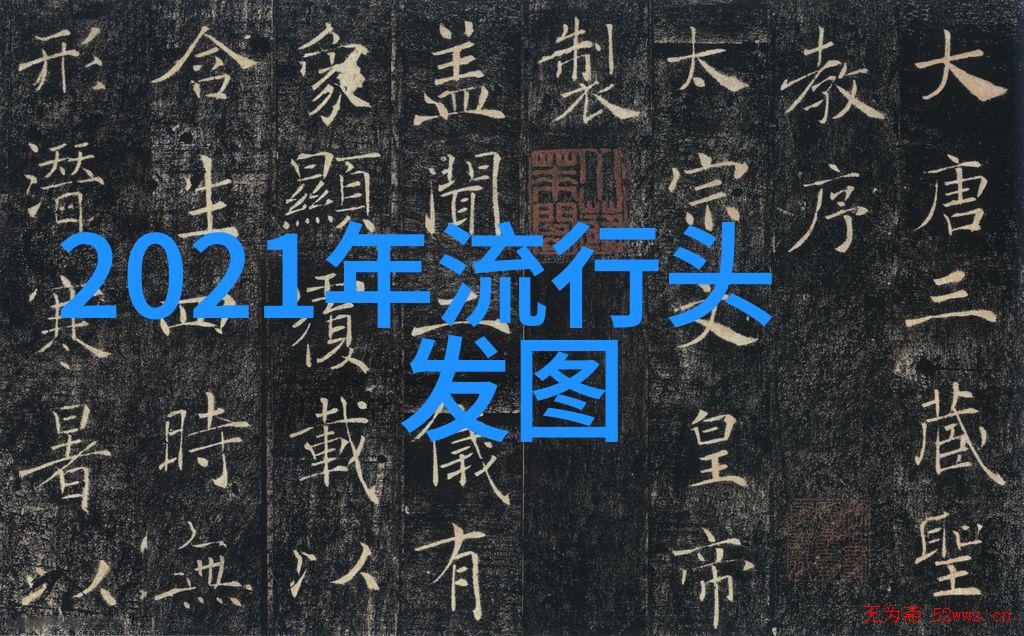 大唐三藏聖
教序
太宗文皇帝
製
盖聞二儀有
象顯覆載以
含生四時無
形潛寒暑以
2021年流行头
发图
无为斋 52wwz.cn